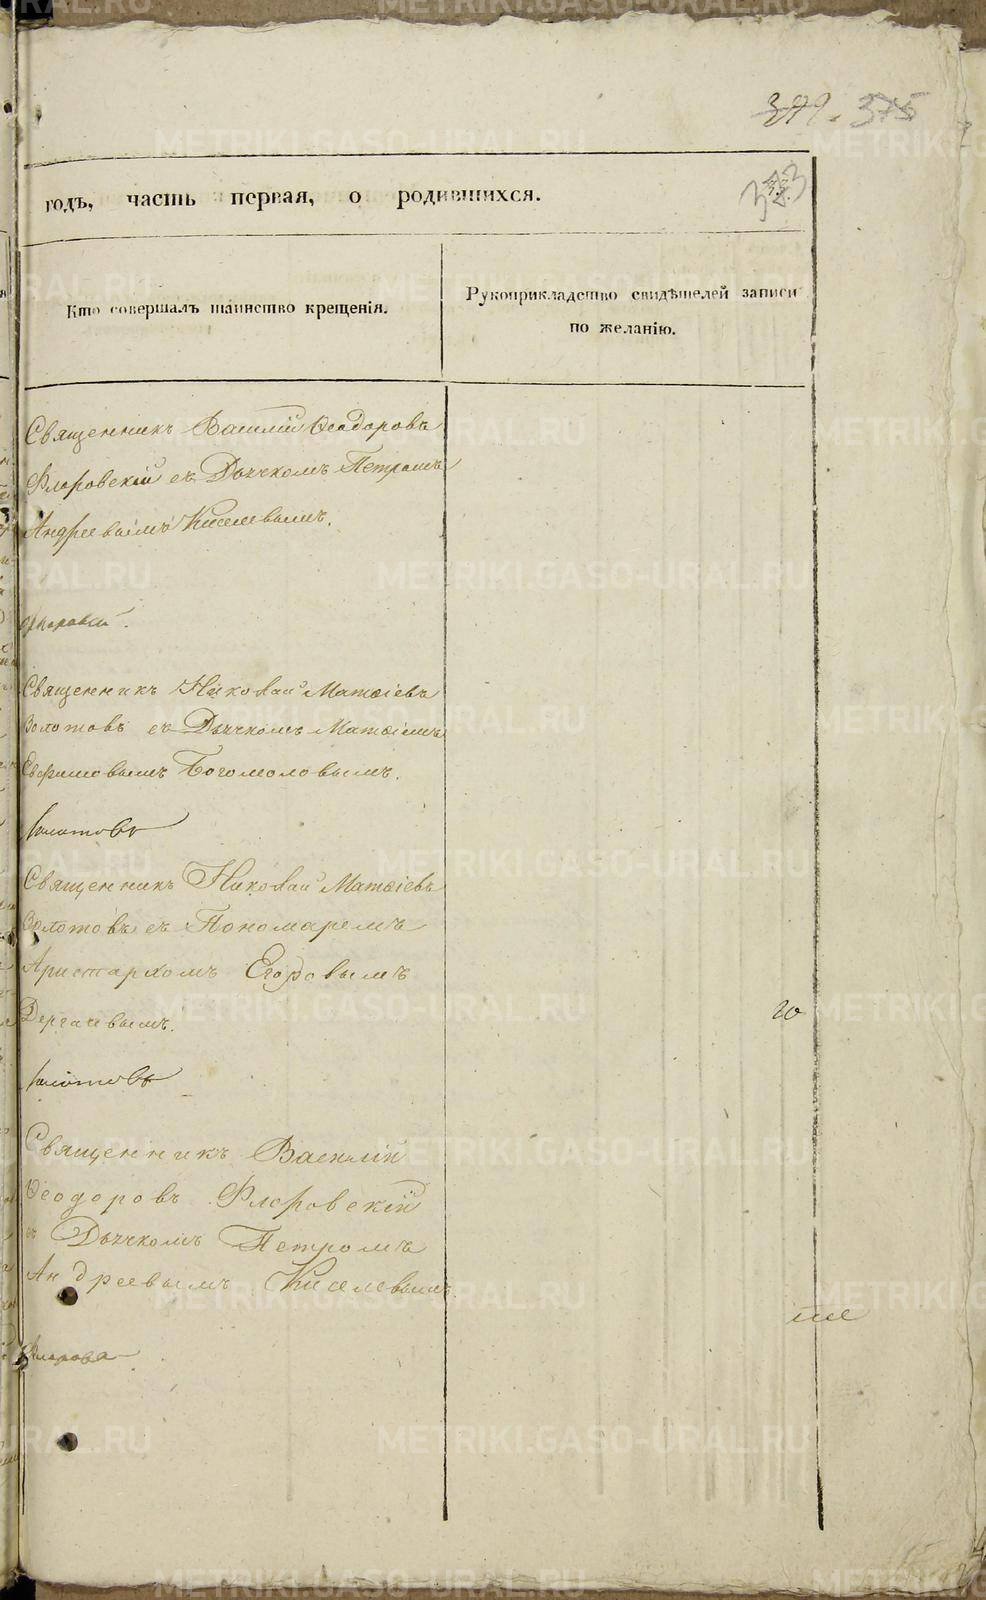 375
годъ, часть первая, о родившихся.
Кто совершалъ таинство крещенія.
Рукоприкладство свидѣтелей записи
по желанію.
Священникъ Василій Ѳеодоровъ
Флоровскій съ Дьячкомъ Петромъ
Андреевымъ Киселевымъ.
Священникъ Николай Матѳіевъ
Золотовъ съ Дьячкомъ Матѳіемъ
Евфимовымъ Богомоловымъ.
Золотовъ
Священникъ Николай Матѳіевъ
Золотовъ съ Пономаремъ
Аристархомъ Егоровымъ
Дергачевымъ.
Золотовъ
Священникъ Василій
Ѳеодоровъ Флоровскій
съ Дьячкомъ Петромъ
Андреевымъ Киселевымъ.
METRIKI.GASO-URAL.RU